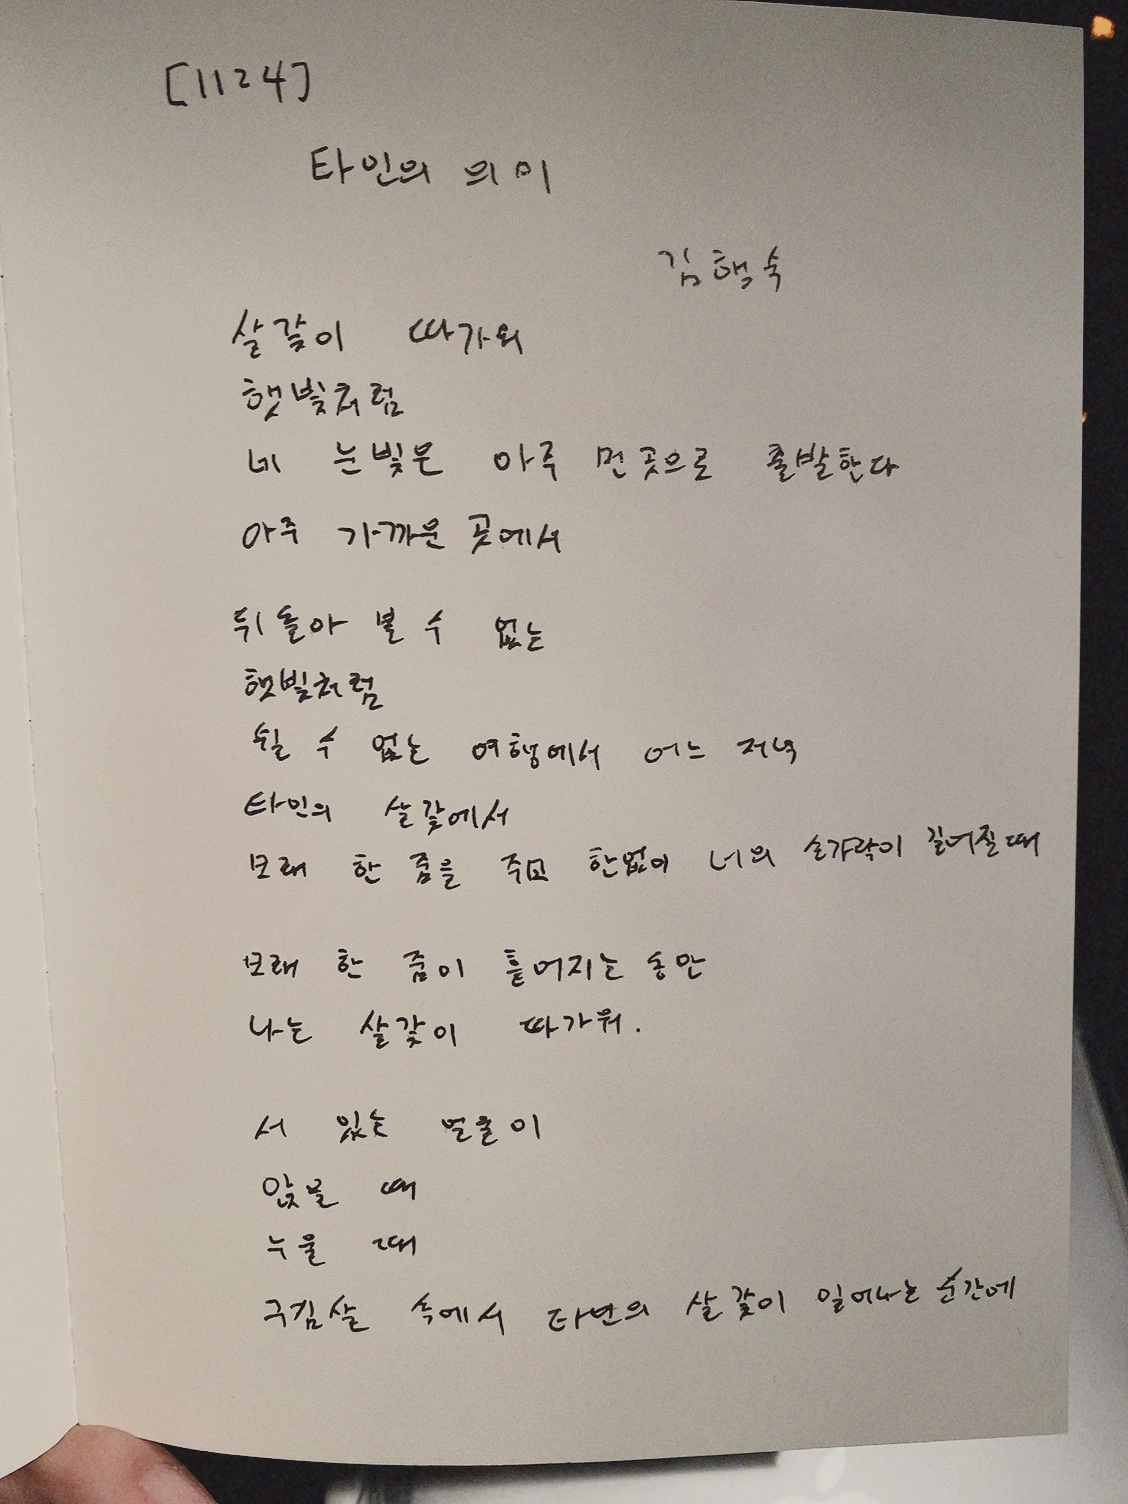 [1124]
타인의 의미
김행숙
살갗이 따가워
햇빛처럼
네 눈빛은 아주 먼 곳으로 출발한다
아주 가까운 곳에서
뒤돌아 볼 수 없는
햇빛처럼
쉴 수 없는 여행에서 어느 저녁
타인의 살갗에서
모래 한 줌을 쥐고 한없이 너의 손가락이 길어질 때
모래 한 줌이 흩어지는 동안
나는 살갗이 따가워.
서 있는 얼굴이
앉을 때
누울 때
구김살 속에서 타인의 살갗이 일어나는 순간에